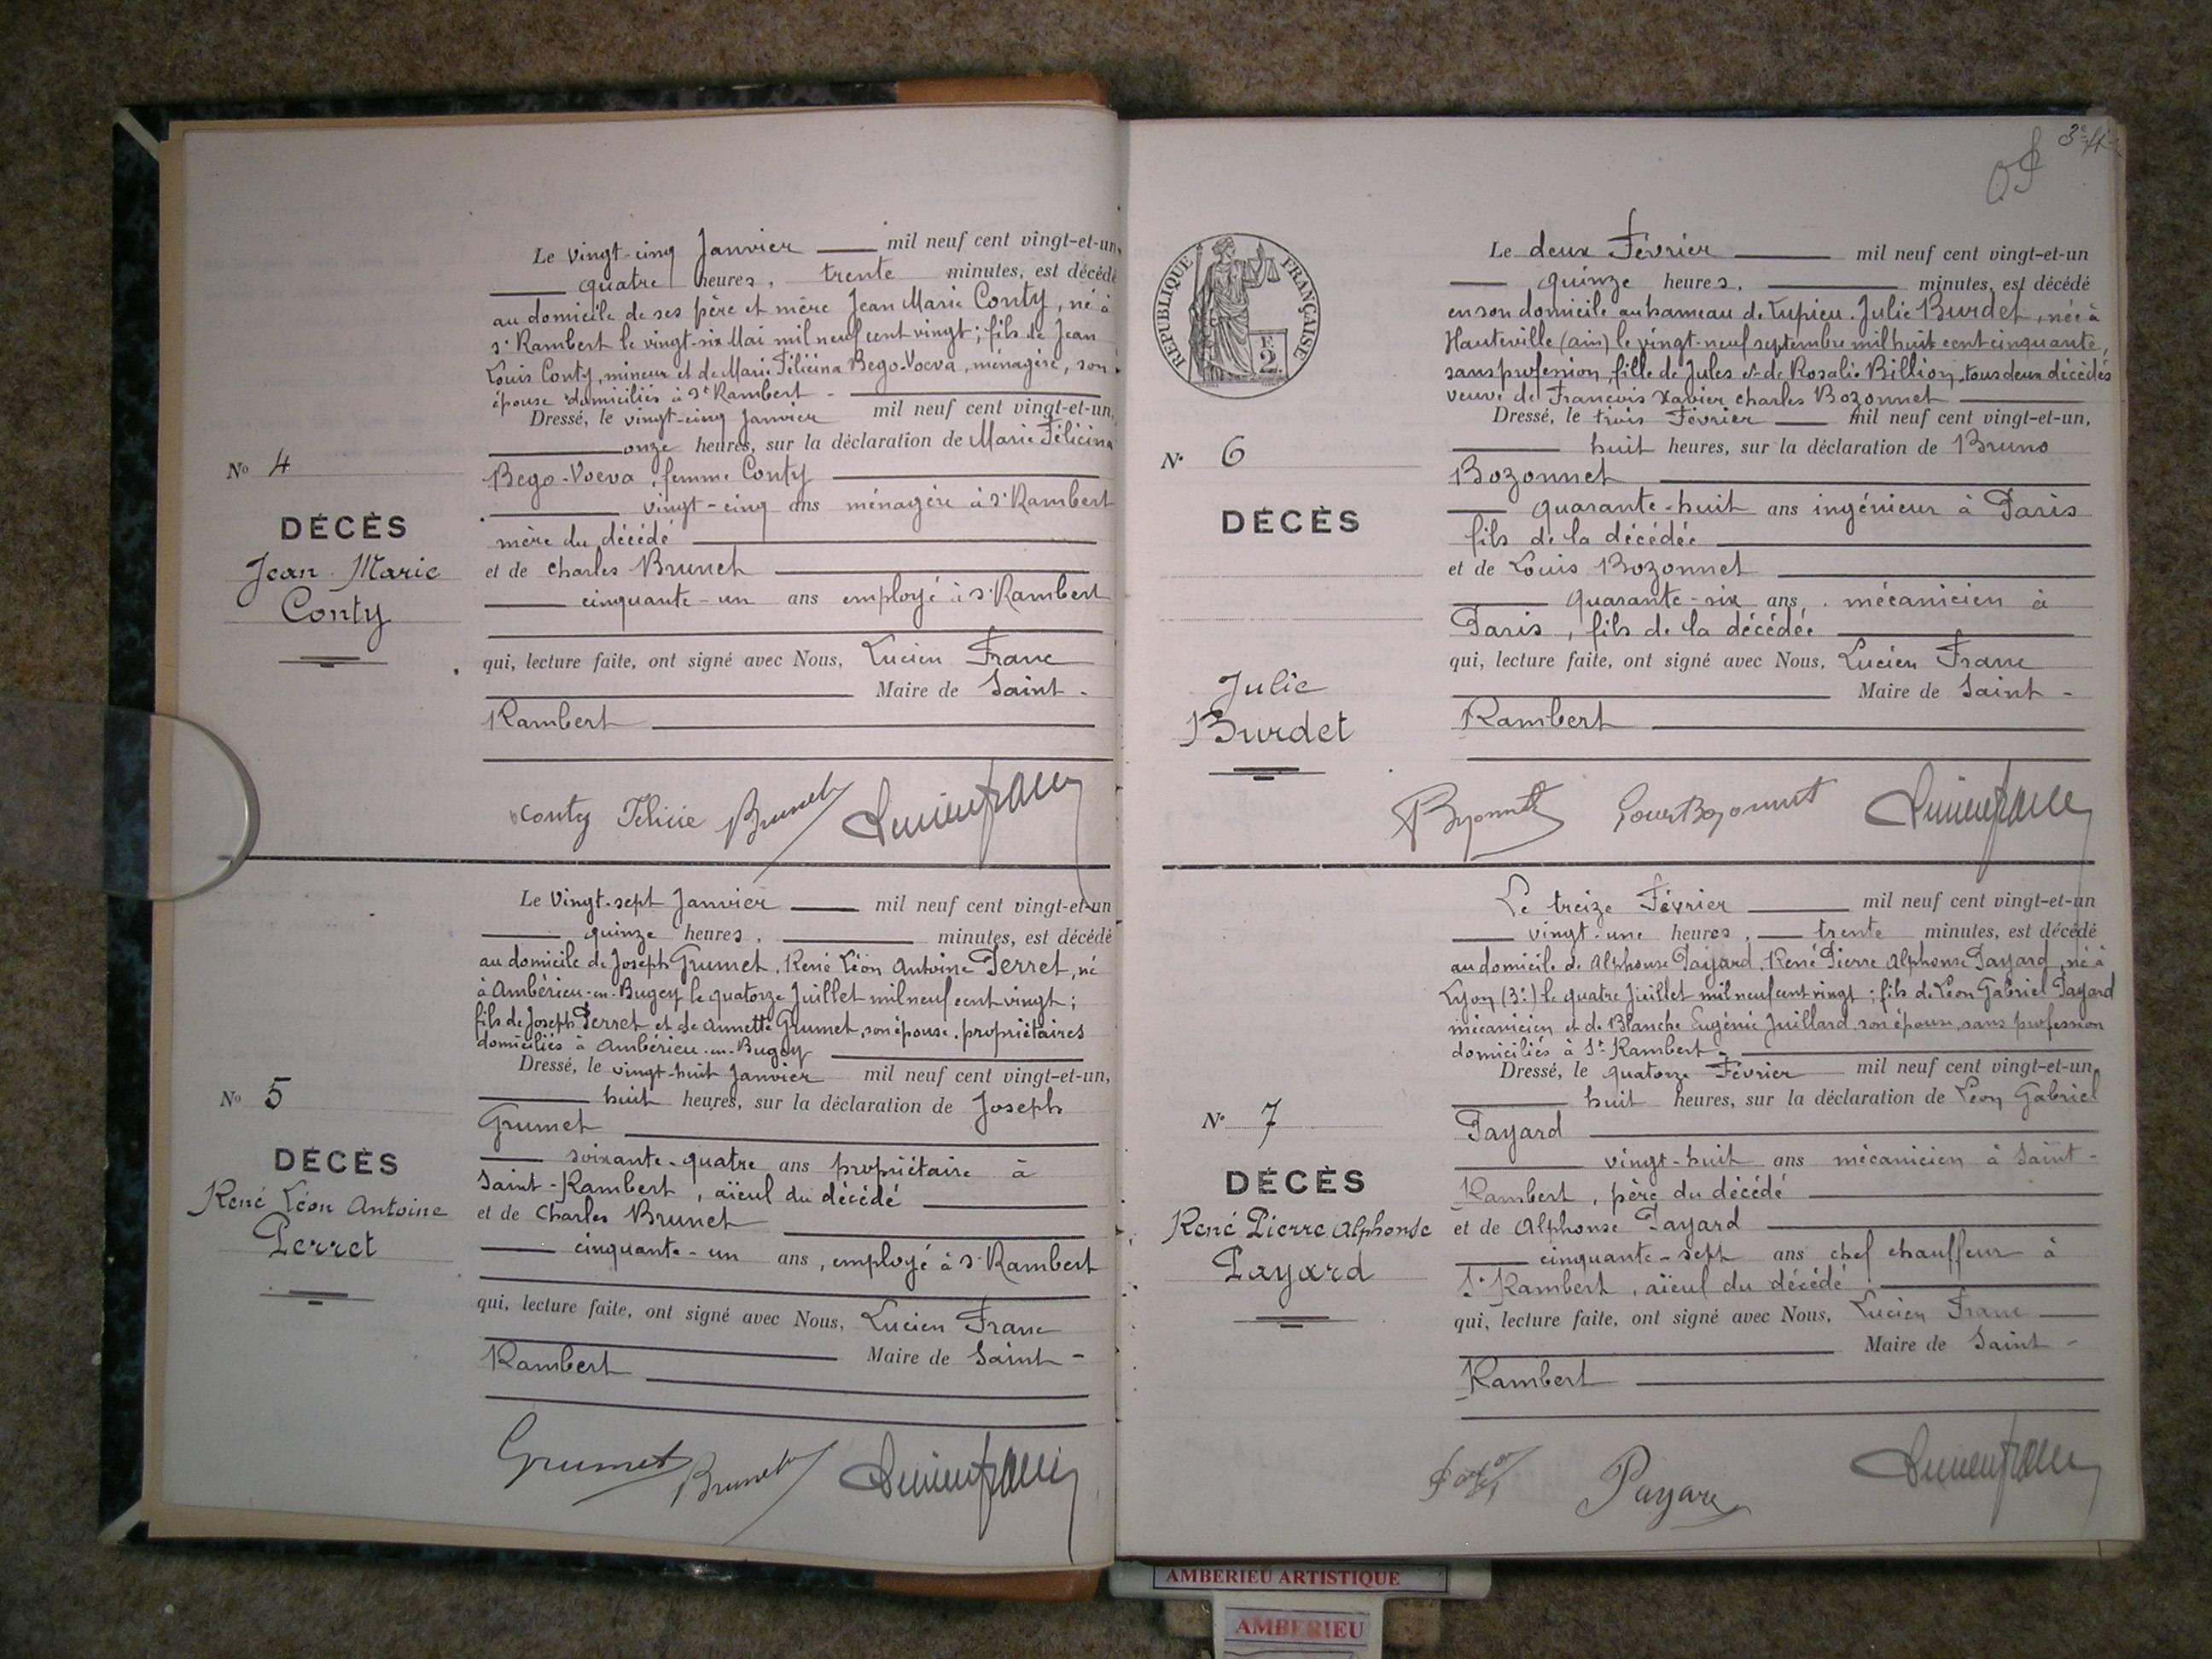 Le vingt-cinq Janvier mil neuf cent vingt-et-un,
quatre heures, trente minutes, est décédé
au domicile de ses père et mère Jean Marie Conty, né à
St Rambert le vingt-six Mai mil neuf cent vingt ; fils de Jean
Louis Conty, mineur et de Marie Félicina Bego-Voeva, ménagère, son
épouse domiciliés à St Rambert -
Dressé, le vingt-cinq Janvier mil neuf cent vingt-et-un,
onze heures, sur la déclaration de Marie Félicina
Bego-Voeva, femme Conty
vingt-cinq ans ménagère à St Rambert
mère du décédé
et de Charles Brunet
cinquante-un ans employé à St Rambert
qui, lecture faite, ont signé avec Nous, Lucien Franc
Maire de Saint-
Rambert
No 4
DÉCÈS
Jean Marie
Conty
Conty Félicie Brunet Lucien Franc
Le Vingt-sept Janvier mil neuf cent vingt-et-un
quinze heures, minutes, est décédé
au domicile de Joseph Grumet, René Léon Antoine Perret, né
à Ambérieu-en-Bugey le quatorze Juillet mil neuf cent vingt ;
fils de Joseph Perret et de Annette Grumet, son épouse, propriétaires
domiciliés à Ambérieu-en-Bugey
Dressé, le vingt-huit Janvier mil neuf cent vingt-et-un,
huit heures, sur la déclaration de Joseph
Grumet
soixante-quatre ans propriétaire à
Saint-Rambert, aïeul du décédé
et de Charles Brunet
cinquante-un ans, employé à St Rambert
qui, lecture faite, ont signé avec Nous, Lucien Franc
Maire de Saint-
Rambert
No 5
DÉCÈS
René Léon Antoine
Perret
Grumet Brunet Lucien Franc
RÉPUBLIQUE FRANÇAISE
2F
Le deux Février mil neuf cent vingt-et-un
quinze heures, minutes, est décédé
en son domicile au hameau de Lupieu, Julie Burdet, née à
Hauteville (ain) le vingt-neuf septembre mil huit cent cinquante,
sans profession, fille de Jules et de Rosalie Billion, tous deux décédés
veuve de François Xavier Charles Bozonnet
Dressé, le trois Février mil neuf cent vingt-et-un,
huit heures, sur la déclaration de Bruno
Bozonnet
quarante-huit ans ingénieur à Paris
fils de la décédée
et de Louis Bozonnet
quarante-six ans, mécanicien à
Paris, fils de la décédée
qui, lecture faite, ont signé avec Nous, Lucien Franc
Maire de Saint-
Rambert
No 6
DÉCÈS
Julie
Burdet
Bozonnet Louis Bozonnet Lucien Franc
Le treize Février mil neuf cent vingt-et-un
vingt-une heures, trente minutes, est décédé
au domicile de Alphonse Payard, René Pierre Alphonse Payard, né à
Lyon (3e) le quatre Juillet mil neuf cent vingt ; fils de Léon Gabriel Payard
mécanicien et de Blanche Eugénie Juillard son épouse, sans profession
domiciliés à St Rambert -
Dressé, le quatorze Février mil neuf cent vingt-et-un,
huit heures, sur la déclaration de Léon Gabriel
Payard
vingt-huit ans mécanicien à Saint-
Rambert, père du décédé
et de Alphonse Payard
cinquante-sept ans chef chauffeur à
St Rambert, aïeul du décédé
qui, lecture faite, ont signé avec Nous, Lucien Franc
Maire de Saint-
Rambert
No 7
DÉCÈS
René Pierre Alphonse
Payard
Payard Lucien Franc
AMBERIEU ARTISTIQUE
AMBERIEU